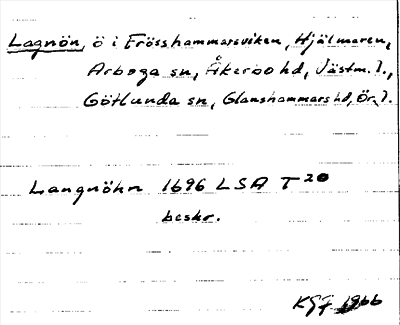 Lagnön, ö i Frösshammarsviken, Hjälmaren,
Arboga sn, Åkerbo hd, Västm. l.,
Götlunda sn, Glanshammars hd, Ör. l.
Langnöhn 1696 LSA T 20
beskr.
1966